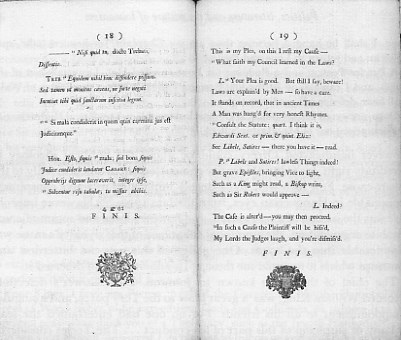 ( 18 )
"Nisi quid tu, docte Trebati,
Dissentis.
TREB "Equidem nihil hinc diffindere possum.
Sed tamen ut monitus caveas, ne forte negoti
Incutiat tibi quid sanctarum inscitia legum.
"Si mala condiderit in quem quis carmina jus est
Judiciumque."
HOR. Esto, siquis "mala; sed bona siquis
Judice condiderit laudatur CÆSARE: siquis
Opprobriis dignum laceraverit, integer ipse,
"Solventur risu tabulæ; tu missus abibis.
FINIS.
( 19 )
This is my Plea, on this I rest my Cause—
"What saith my Council learned in the Laws?
L. "Your Plea is good. But still I say, beware!
Laws are explain'd by Men — so have a care.
It stands on record, that in ancient Times
A Man was hang'd for very honest Rhymes.
"Consult the Statute: quart. I think it is,
Edwardi Sext. or prim. & quint. Eliz:
See Libels, Satires — there you have it — read.
P. "Libels and Satires! lawless Things indeed!
But grave Epistles, bringing Vice to light,
Such as a King might read, a Bishop write,
Such as Sir Robert would approve —
L. Indeed?
The Case is alter'd — you may then proceed.
"In such a Cause the Plaintiff will be hiss'd,
My Lords the Judges laugh, and you're dismiss'd.
FINIS.